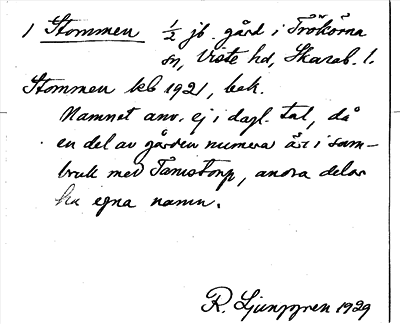 1 Stommen 1/2 jb. gård i Trökörna
sn, Viste hd, Skarab. l.
Stommen kb 1921, bek.
Namnet anv. ej i dagl. tal, då
en del av gården numera är i sam-
bruk med Tanistorp, andra delar
ha egna namn.
R. Ljunggren 1929